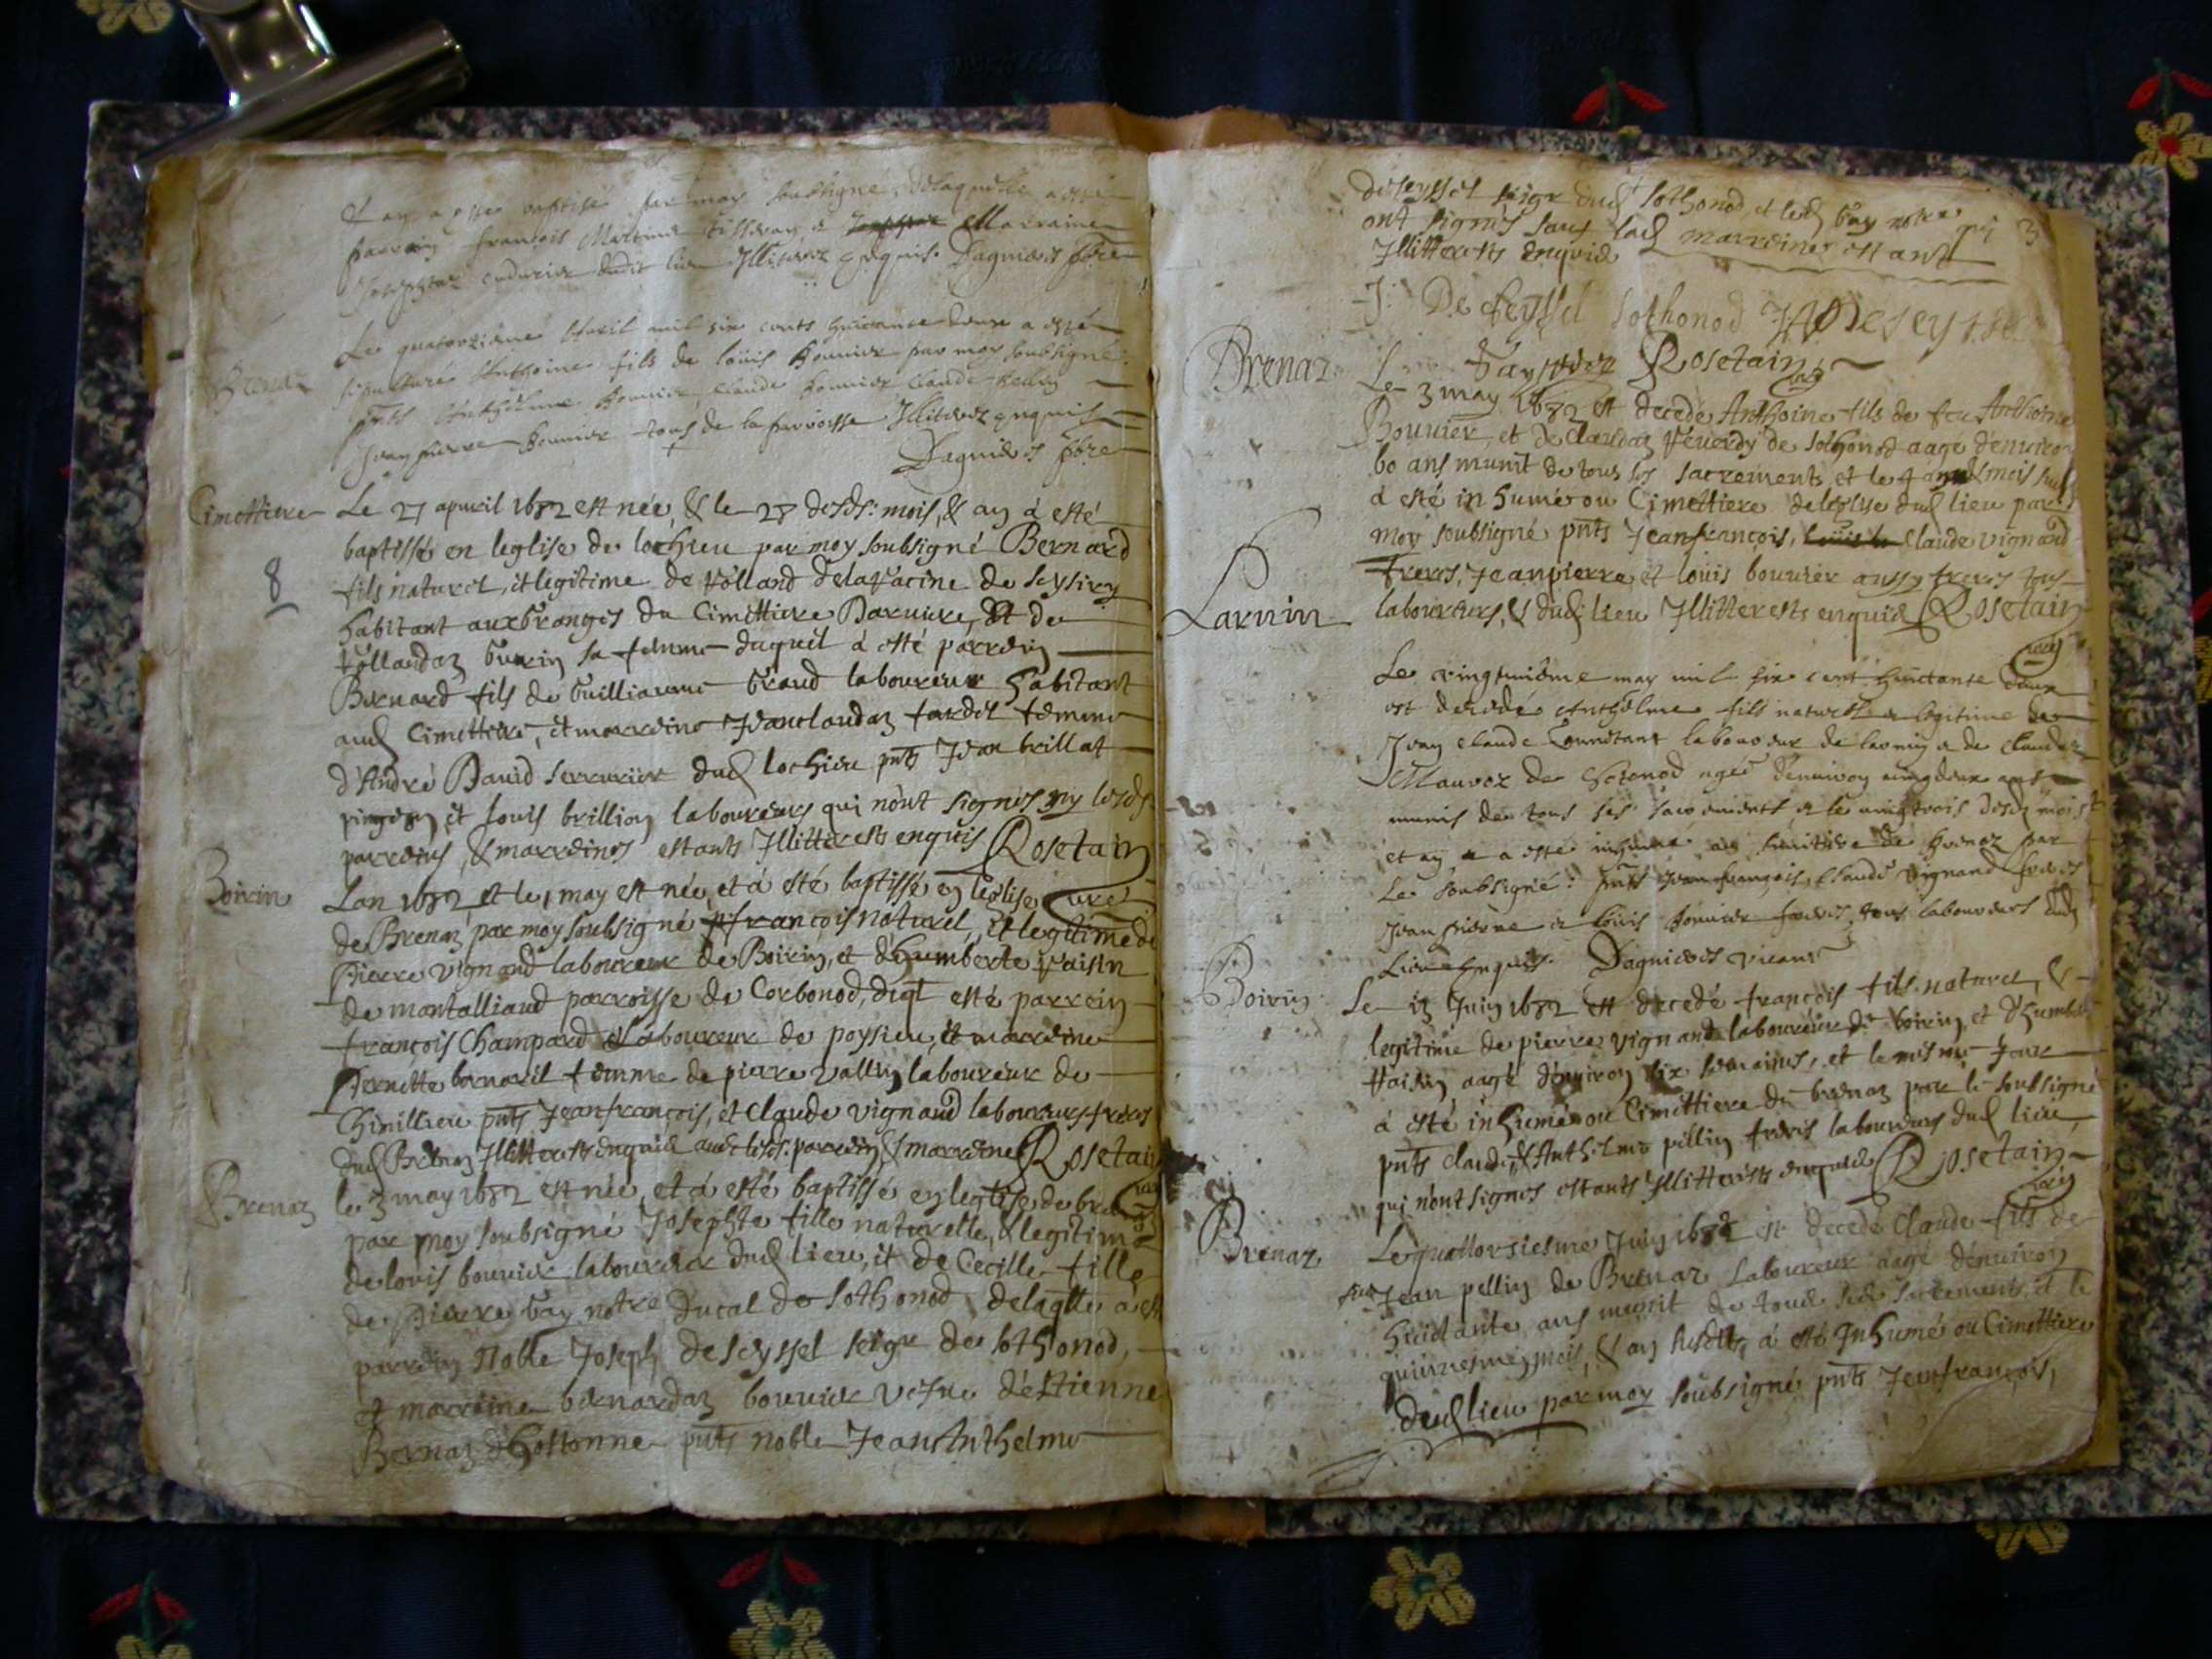 & an a esté baptisé par moy soubsigné delaquelle a esté
parrain françois Martine et Marraine
Josephte dudit lieu Illiterez enquis. Dagnieres pbre
Brenaz
Le quatorzieme Avril mil six cents huictante deux a esté
sepulturé Anthoine fils de loüis Bouvier par moy soubsigné
pnts Anthelme Bouvier Claude Bouvier Claude Pellin
Jean pierre Bouvier tous de la parroisse Illiterez enquis
Dagnieres pbre
Cimettiere Le 27 apuril 1682 est née, & le 28 desds: mois, & an à esté
baptissé en leglise de lochieu par moy soubsigné Bernard
8
fils naturel, et legitime de Rolland delaracine de seysiry
habitant aux Granges du Cimettiere Baruiere, & de
Rollandaz Guerin sa femme duquel à esté parrein
Bernard fils de Guilliaume Graud laboureur habitant
aud Cimettiere, et marreine Jeanclaudaz fardel femme
d'André Dauid serrurier dud lochieu pnts Jean brillat
et louis brillion laboureurs qui nont signés ny lesds
parreins, & marreines estants Illitterests enquis Rosetain
Boirin Lan 1682 et le 1 may est née, et à esté baptissé en leglise curé
de Brenaz par moy soubsigné françois naturel, et legitime de
Pierre vignand laboureur de Boirin, et d'humberte Raisin
de montalliaud parroisse de Corbonod, diql esté parrein
françois Champard Laboureur de poysieu, et marreine
Pernette bornaril femme de pierre vallin laboureur de
Chinillieu pnts Jeanfrançois, et Claude vignaud laboureurs freres
dud Brenaz Illitterests enquis auec lesds: parrein & marreine Rosetain
Brenaz le 3 may 1682 est née, et à esté baptissé en leglise de brenaz
par moy soubsigné Josephte fille naturelle, & legitime
de lovis bouuier laboureur dud lieu, et de Cecille fille
de Pierre Gay notre Ducal de sothonod delaqlle à esté
parrein Noble Joseph de seyssel seigr de sothonod,
et marreine bernardaz bouuier vefue d'estienne
Bernaz d'hostonne pnts noble Jean Anthelme
deseyssel seigr dud sothonod, et led Gay notre qui 3
ont signés sauf lad marreine estant
Illitterests enquis
J: De seyssel sothonod JA Deseyssel
Gay Rosetain curé
Brenaz Le 3 may 1682 est decedé Anthoine fils de feu Anthoine
Bouuier, et de Claudaz Reuerdy de sothonod aage d'enuiron
60 ans munit de tous ses sacrements et le 4 mois susd
à esté inhumé ou Cimettiere deleglise dud lieu par
moy soubsigné pnts Jeanfrançois, Claude vignand
freres, Jeanpierre et loüis bouuier aussy freres tous
Larnin laboureurs, & dud lieu Illitterests enquis Rosetain
curé
Le vingtuniéme may mil six cent huictante deux
est decedé Anthelme fils naturel & legitime de
Jean claude laboureur de larnin & de claudaz
Mauvez de Chosonod agé d'enuiron vingdeux ans
munis de tous ses sacrements & le vingtrois desd mois
et an a esté inhumé au simitiere de Brenaz par
Le soubsigné pnts Jean françois, Claude vignand freres
Jean pierre & loüis Bouuier freres, tous laboureurs dud
Lieu enquis. Dagnieres vicaire
Boirin Le 13 Juin 1682 est decedé françois fils naturel, &
legitime de pierre vignand laboureur de boirin, et d'humberte
Raisin, aagé d'enuiron six semaines, et le mesme Jour
à esté inhumé ou Cimettiere de brenaz par le soussigné
pnts claude, & Anthelme pellin freres laboureurs dud lieu
qui nont signés estants Illitterests enquis Rosetain
curé
Brenaz Le quattorsiesme Juin 1682 est decedé Claude fils de
feu Jean pellin de Brenaz Laboureur aagé d'enuiron
huictante ans munit de tous ses sacrements, et le
quinziesme mois, & an susdts, à esté Inhumé ou Cimettiere
dud lieu par moy soubsigné pnts Jeanfrançois,